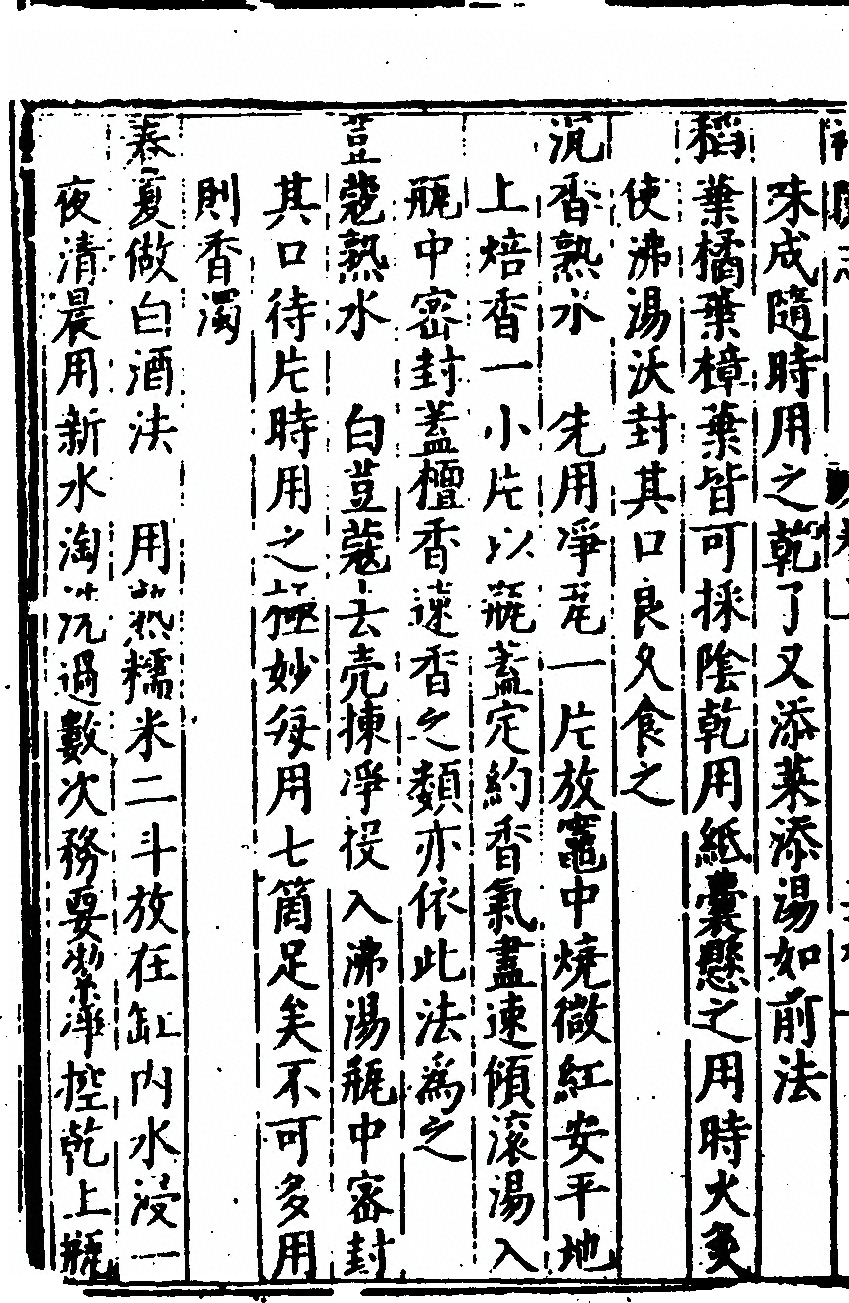 殊成隨時用之乾了又添葉添湯如前法
稻葉橘葉橠葉皆可採陰乾用紙囊懸之用時火炙
使沸湯沃封其口良久食之
沉香熟水　先用淨瓦一片放竈中燒微紅安平地
上焙香一小片以瓶蓋定約香氣盡速傾滾湯入
瓶中密封蓋檀香速香之類亦依此法爲之
荳蔻熟水　白荳蔻去壳揀淨投入沸湯瓶中密封
其口待片時用之極妙每用七箇足矣不可多用
則香濁
春夏做白酒法　用熟糯米二斗放在缸內水浸一
夜清晨用新水淘洗過數次務要潔凈控乾上甑